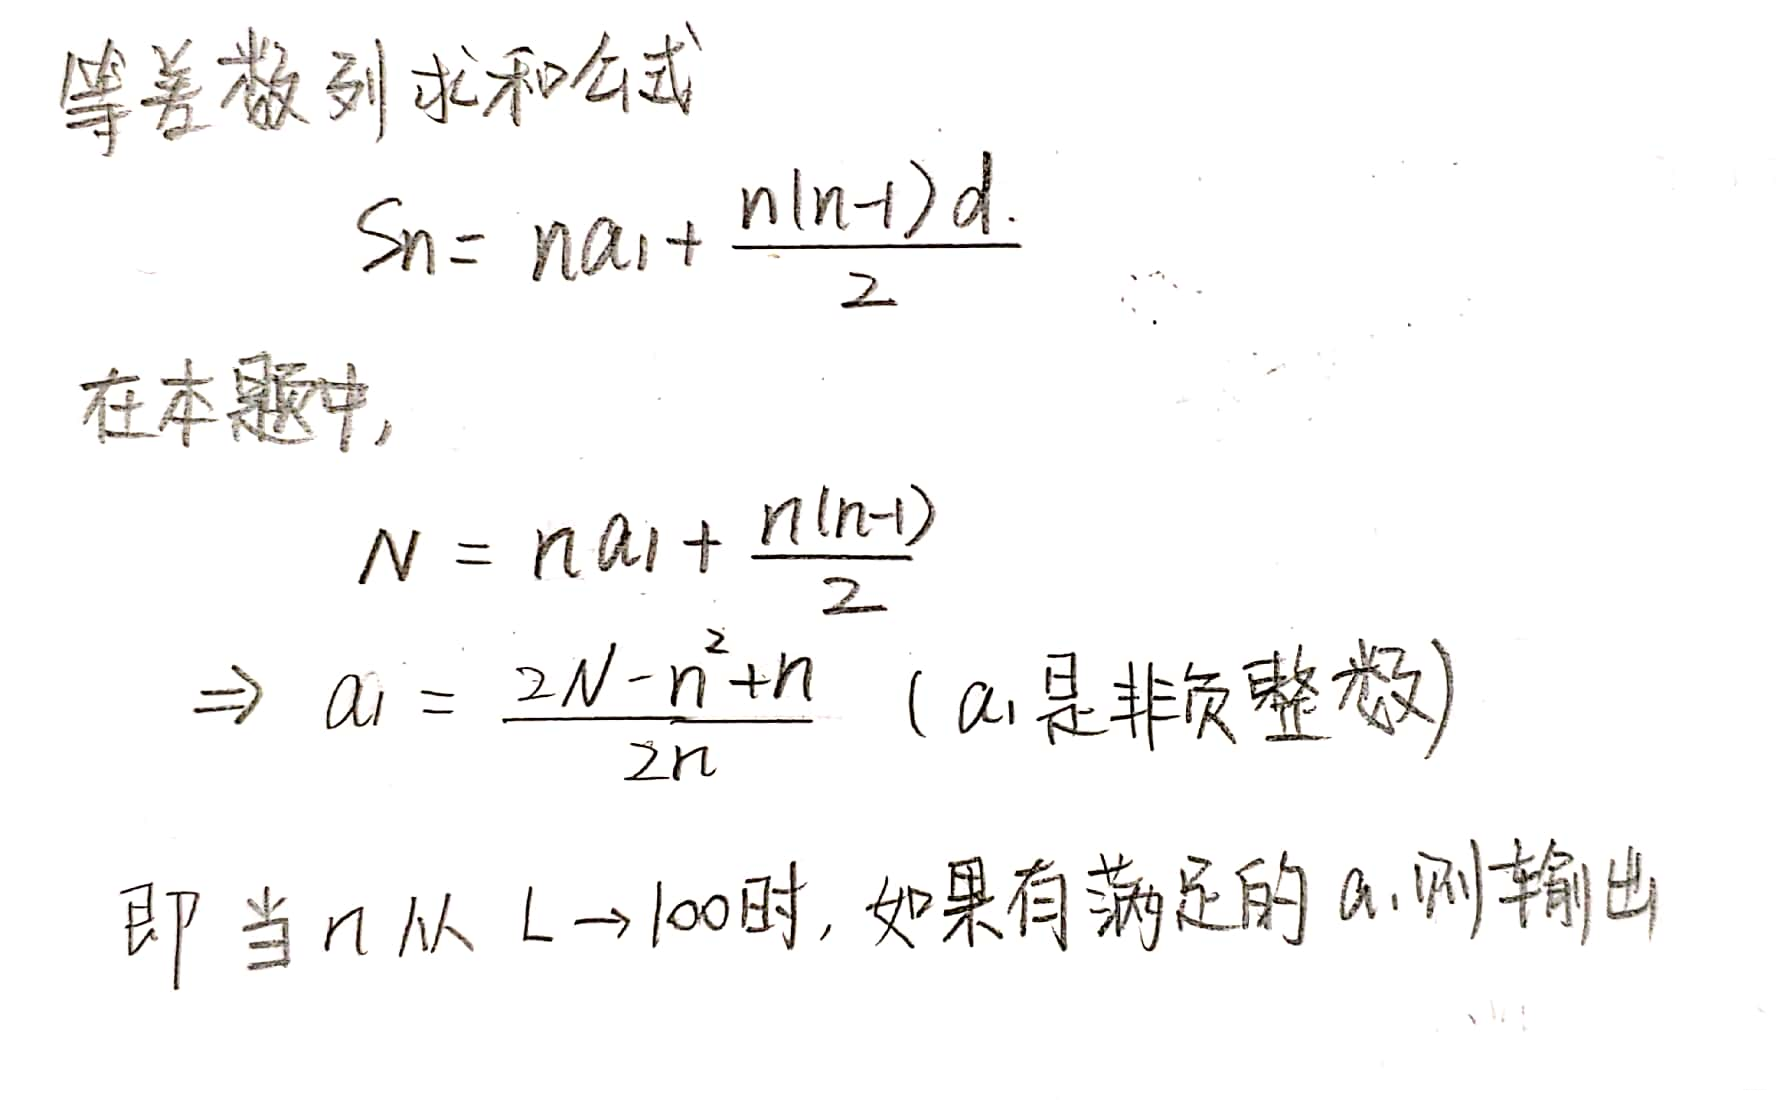 等差数列求和公式
Sn = na₁ + n(n-1)d / 2
在本题中,
N = na₁ + n(n-1) / 2
⇒ a₁ = 2N-n²+n / 2n (a₁是非负整数)
即当n从 L→100时, 如果有满足的a₁则输出